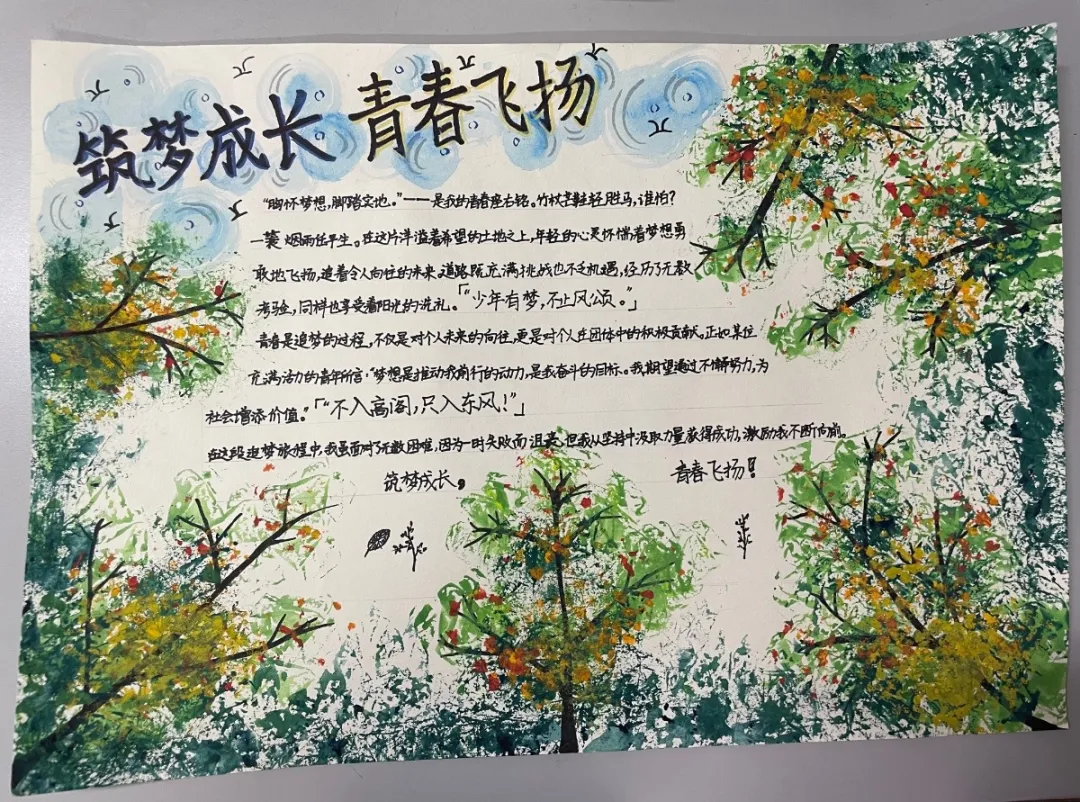 筑梦成长 青春飞扬
“胸怀梦想,脚踏实地。”——是我的青春座右铭。竹杖芒鞋轻胜马,谁怕?
一蓑烟雨任平生。在这片洋溢着希望的土地之上,年轻的心灵怀揣着梦想勇
敢地飞扬,追着令人向往的未来。道路既充满挑战也不乏机遇,经历了无数
考验,同样也享受着阳光的洗礼。「“少年有梦,不止风颂。”」
青春是追梦的过程,不仅是对个人未来的向往,更是对个人在团体中的积极贡献。正如某位
充满活力的青年所言:“梦想是推动我前行的动力,是我奋斗的目标。我期望通过不懈努力,为
社会增添价值。”「“不入高阁,只入东风!”」
在这段追梦旅程中,我虽面对了无数困难,因为一时失败而沮丧,但我从坚持中汲取力量获得成功,激励我不断向前。
筑梦成长, 青春飞扬!